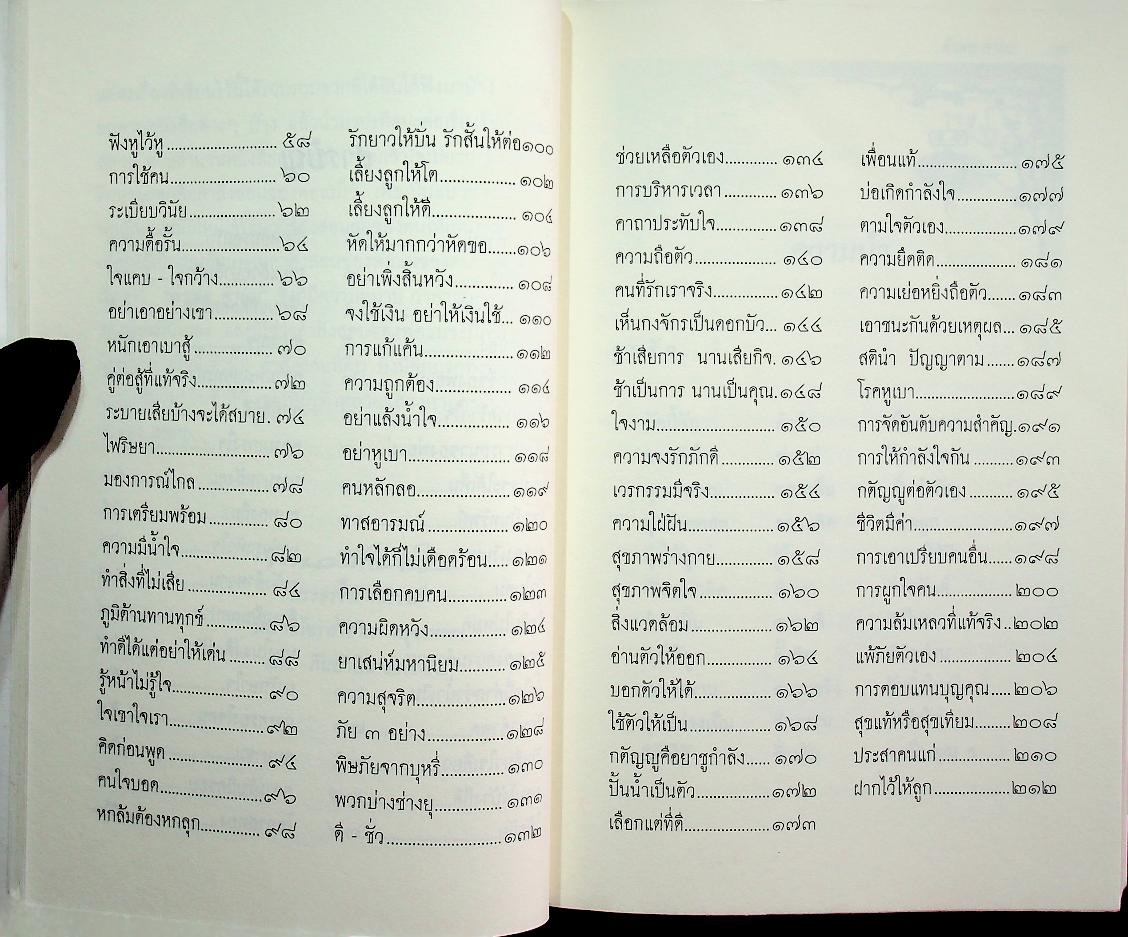 ฟังหูไว้หู ............................ ๕๘
การใช้คน........................... ๖๐
ระเบียบวินัย.....................๖๒
ความดื้อรั้น.........................๖๔
ใจแคบ - ใจกว้าง..............๖๖
อย่าเอาอย่างเขา...............๖๘
หนักเอาเบาสู้....................๗๐
คู่ต่อสู้ที่แท้จริง...................๗๒
ระบายเสียบ้างจะได้สบาย. ๗๔
ไฟริษยา.............................๗๖
มองการณ์ไกล...................๗๘
การเตรียมพร้อม................๘๐
ความมีน้ำใจ.......................๘๒
ทำสิ่งที่ไม่เสีย ......................๘๔
ภูมิต้านทานทุกข์ ................๘๖
ทำดีได้แต่อย่าให้เด่น .........๘๘
รู้หน้าไม่รู้ใจ....................... ๙๐
ใจเขาใจเรา........................๙๒
คิดก่อนพูด ........................ ๙๔
คนใจบอด..........................๙๖
หกล้มต้องหกลุก................๙๘
รักยาวให้บั่น รักสั้นให้ต่อ๑๐๐
เลี้ยงลูกให้โต................... ๑๐๒
เลี้ยงลูกให้ดี..................... ๑๐๔
หัดให้มากกว่าหัดขอ.......๑๐๖
อย่าเพิ่งสิ้นหวัง................ ๑๐๘
จงใช้เงิน อย่าให้เงินใช้... ๑๑๐
การแก้แค้น...................... ๑๑๒
ความถูกต้อง.................... ๑๑๔
อย่าแล้งน้ำใจ................... ๑๑๖
อย่าหูเบา..........................๑๑๘
คนหลักลอ........................๑๑๙
ทาสอารมณ์ ..................... ๑๒๐
ทำใจได้ก็ไม่เดือดร้อน..... ๑๒๑
การเลือกคบคน............... ๑๒๓
ความผิดหวัง.................... ๑๒๔
ยาเสน่ห์มหานิยม............ ๑๒๕
ความสุจริต...................... ๑๒๖
ภัย ๓ อย่าง.................... ๑๒๘
พิษภัยจากบุหรี่................ ๑๓๐
พวกบ่างช่างยุ.................. ๑๓๑
ดี - ชั่ว............................. ๑๓๒
ช่วยเหลือตัวเอง............. ๑๓๔
การบริหารเวลา ............. ๑๓๖
คาถาประทับใจ...............๑๓๘
ความถือตัว ..................... ๑๔๐
คนที่รักเราจริง................ ๑๔๒
เห็นกงจักรเป็นดอกบัว... ๑๔๔
ช้าเสียการ นานเสียกิจ. ๑๔๖
ช้าเป็นการ นานเป็นคุณ. ๑๔๘
ใจงาม.............................. ๑๕๐
ความจงรักภักดี .............. ๑๕๒
เวรกรรมมีจริง................. ๑๕๔
ความใฝ่ฝัน...................... ๑๕๖
สุขภาพร่างกาย............... ๑๕๘
สุขภาพจิตใจ................... ๑๖๐
สิ่งแวดล้อม..................... ๑๖๒
อ่านตัวให้ออก................. ๑๖๔
บอกตัวให้ได้.................... ๑๖๖
ใช้ตัวให้เป็น..................... ๑๖๘
กตัญญูคือยาชูกำลัง...... ๑๗๐
ปั้นน้ำเป็นตัว................... ๑๗๒
เลือกแต่ที่ดี......................๑๗๓
เพื่อนแท้.......................... ๑๗๕
บ่อเกิดกำลังใจ...............๑๗๗
ตามใจตัวเอง..................๑๗๙
ความยึดติด.................... ๑๘๑
ความเย่อหยิ่งถือตัว........๑๘๓
เอาชนะกันด้วยเหตุผล...๑๘๕
สตินำ ปัญญาตาม.........๑๘๗
โรคหูเบา.........................๑๘๙
การจัดอันดับความสำคัญ.๑๙๑
การให้กำลังใจกัน ..........๑๙๓
กตัญญูต่อตัวเอง ............๑๙๕
ชีวิตมีค่า..........................๑๙๗
การเอาเปรียบคนอื่น.......๑๙๘
การผูกใจคน....................๒๐๐
ความล้มเหลวที่แท้จริง..๒๐๒
แพ้ภัยตัวเอง ...................๒๐๔
การตอบแทนบุญคุณ.....๒๐๖
สุขแท้หรือสุขเทียม.........๒๐๘
ประสาคนแก่...................๒๑๐
ฝากไว้ให้ลูก....................๒๑๒